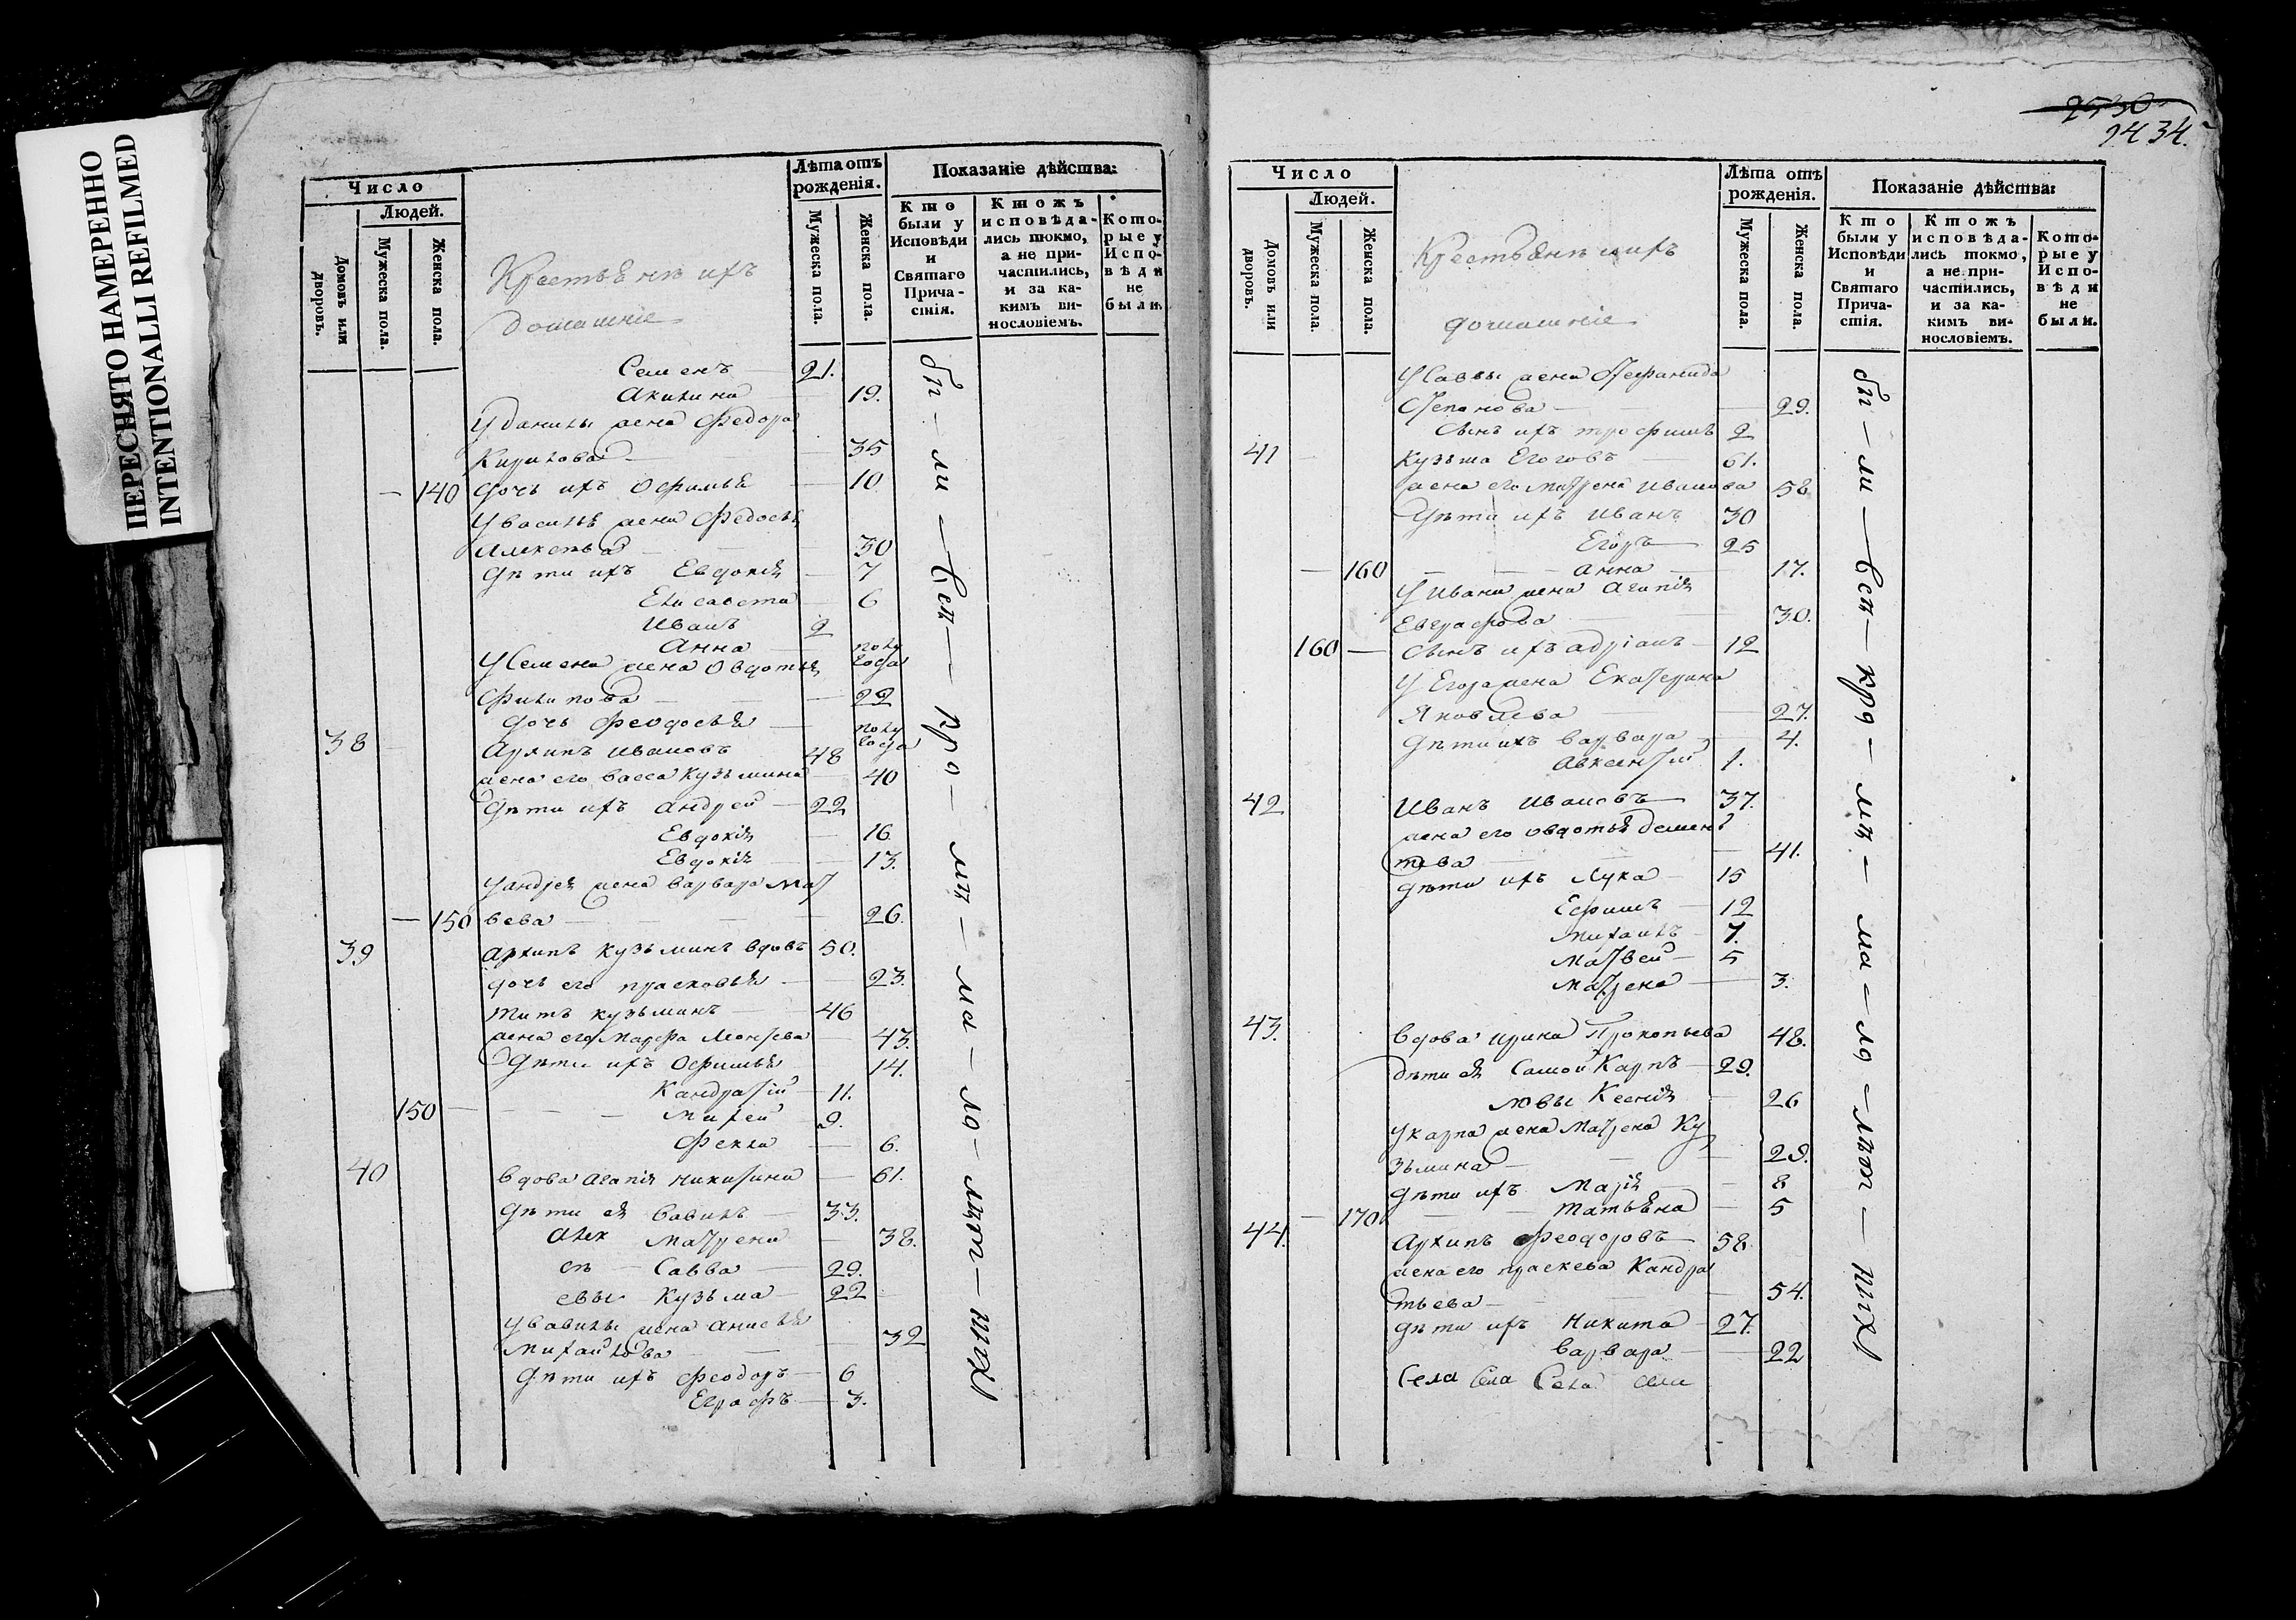 ПЕРЕСНЯТО НАМЕРЕННО
INTENTIONALLI REFILMED
Число
Людей.
Домовъ или дворовъ.
Мужеска пола.
Женска пола.
Крестьянъ ихъ
домашніе
Лѣта отъ рожденія.
Мужеска пола.
Женска пола.
Показаніе дѣйства:
Кто были у Исповѣди и Святаго Прича-стія.
Ктожъ исповѣда-лись токмо, а не при-частились, и за ка-кимъ ви-нословіемъ.
Кото-рые у Испо-вѣди не были.
Семенъ 21.
Акилина 19.
У данилы жена Федора
Кирилова 35
140 дочь ихъ Офимья 10
У василья жена Федосья
Алексѣева 30
дѣти ихъ Евдокія 7
Елисавета 6
Иванъ 2
Анна полу года
У Семена жена Овдотья
Филипова 22
дочь Феодосья полу года
38 Архипъ Ивановъ 48
жена его васса Кузьмина 40
дѣти ихъ андрей 22
Евдокія 16
Евдокія 13.
У андрея жена варвара Мат
150 вева 26.
39 архипъ Кузьминъ вдовъ 50.
дочь его прасковья 23.
титъ кузьминъ 46
жена его Марфа 43.
дѣти ихъ Офимья 14.
Кандратій 11.
150 Михей 9.
Фекла 6.
40 вдова агапія никитина 61.
дѣти ея вавилъ 33.
Алек Матрена 38.
сѣ Савва 29.
евы Кузьма 22
У вавилы жена анисья
Михайлова 32
дѣти ихъ феодоръ 6
Еграфъ 3.
бы - ли - всѣ - про - мѣ - ма - ло - лѣт - нихъ
2530
1434.
Число
Людей.
Домовъ или дворовъ.
Мужеска пола.
Женска пола.
Крестьянъ ихъ
домашніе
Лѣта отъ рожденія.
Мужеска пола.
Женска пола.
Показаніе дѣйства:
Кто были у Исповѣди и Святаго Прича-стія.
Ктожъ исповѣда-лись токмо, а не при-частились, и за ка-кимъ ви-нословіемъ.
Кото-рые у Испо-вѣди не были.
У Саввы жена Стефанида
Степанова 29.
сынъ ихъ трофимъ 2
41 Кузьма Егоровъ 61.
жена его Матрена Иванова 58
дѣти ихъ Иванъ 30
Егоръ 25
160 анна 17.
У Ивана жена Агапія
Евграфова 30.
160 сынъ ихъ адріанъ 12
У Егора жена Екатерина
Яковлева 27.
дѣти ихъ варвара 4.
авксентій 1.
42 Иванъ Ивановъ 37.
жена его овдотья демен
тева 41.
дѣти ихъ Лука 15
Ефимъ 12
Михаилъ 7.
Матвей 5
Матрена 3.
43. вдова ирина Прокопьева 48.
дѣти ея Самой Карпъ 29.
ловы Ксенія 26
У карпа жена Матрена Ку
зьмина 29.
дѣти ихъ Марія 8
170 татьяна 5
44. архипъ феодоровъ 58
жена его праскева Кандра
тьева 54.
дѣти ихъ Никита 27.
варвара 22
Села Села Села
бы - ли - всѣ - кро - мѣ - ма - ло - лѣт - нихъ